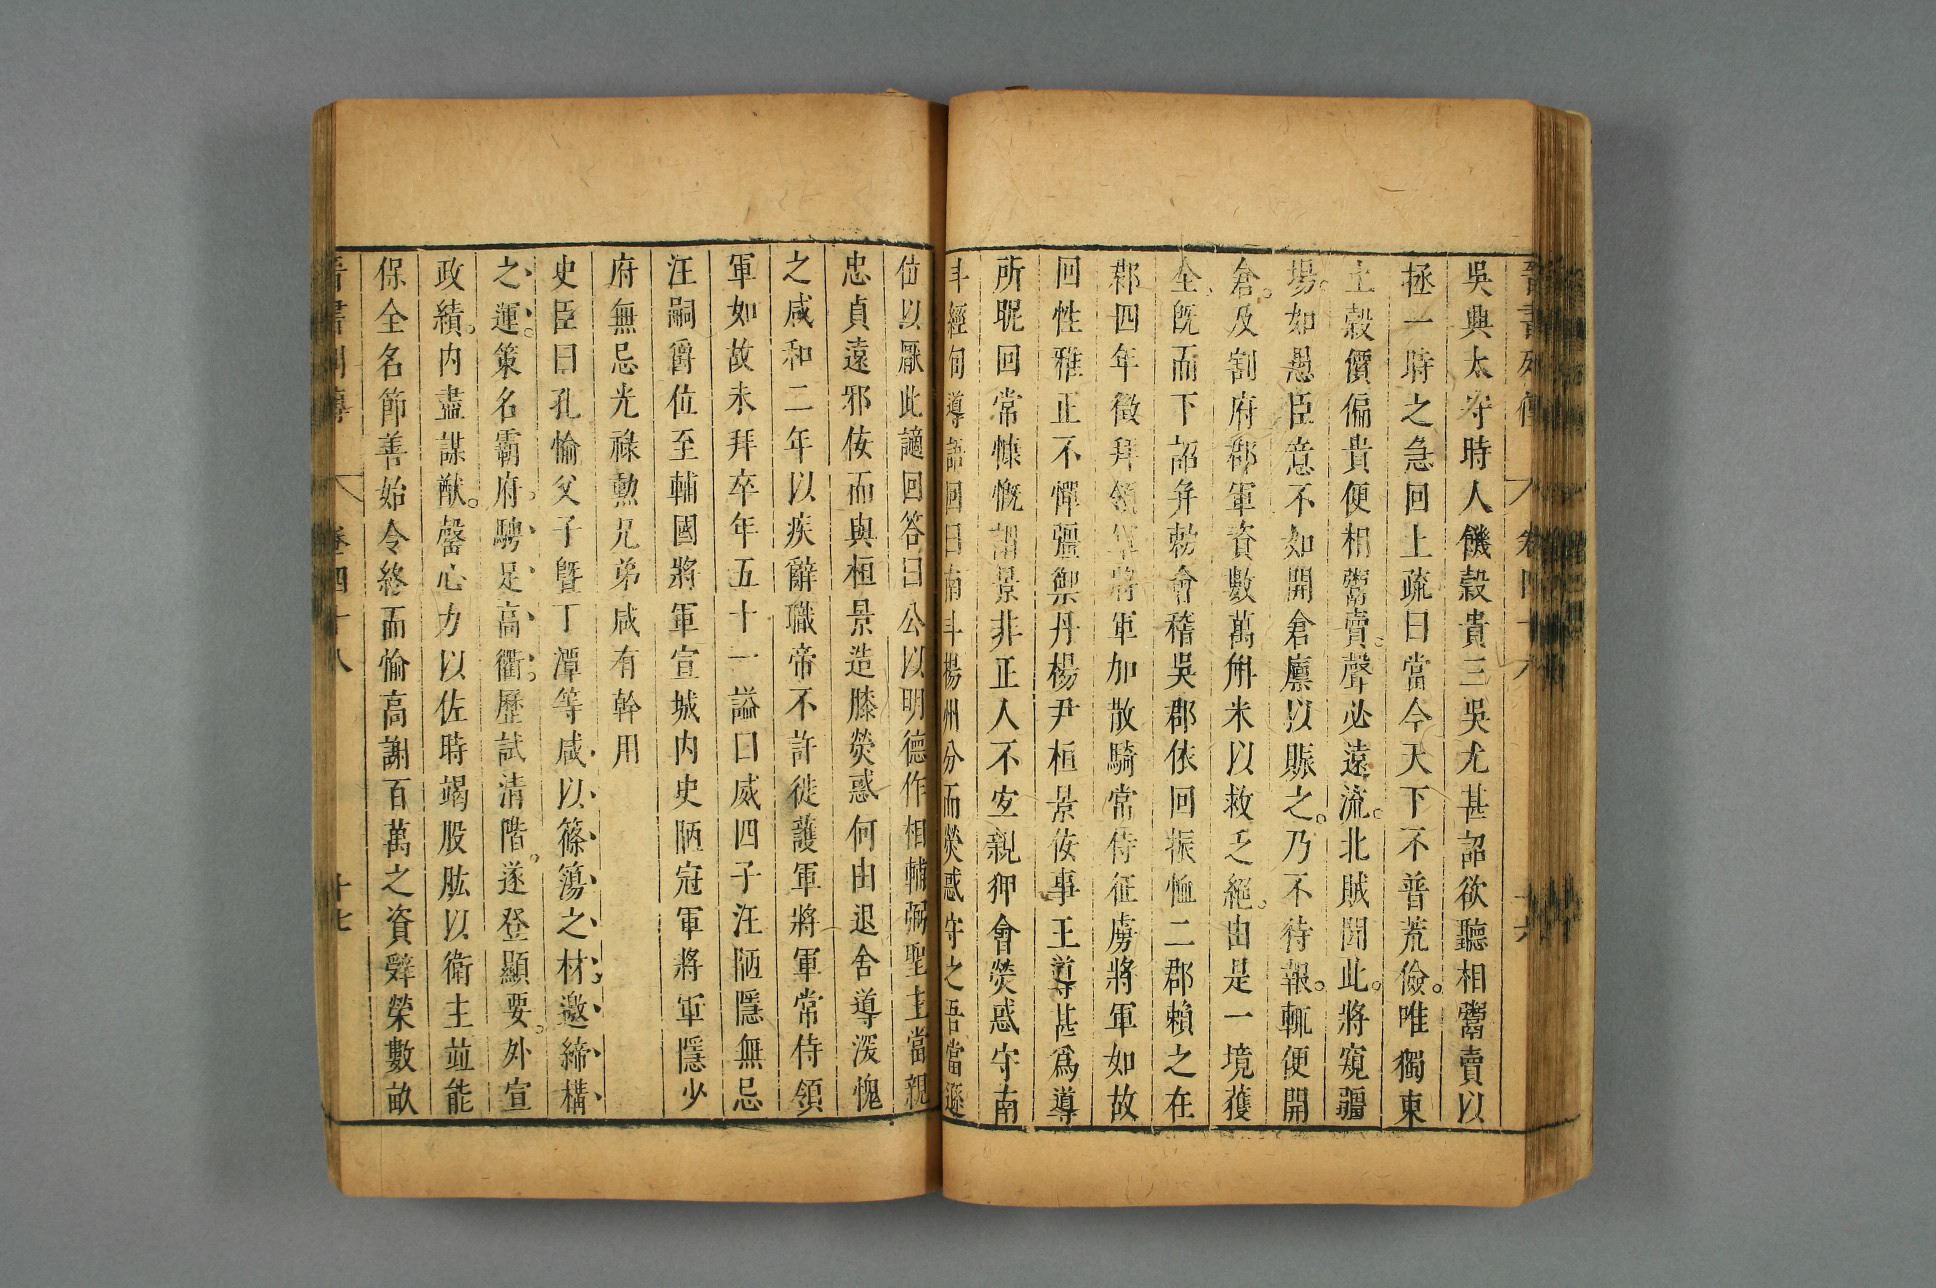 晉書列傳 卷四十八 十六
吳興太守時人饑穀貴三吳尤甚詔欲聽相鬻賣以
拯一時之急回上疏曰當今天下不普荒儉。唯獨東
土穀價偏貴便相鬻賣。聲必遠流。北賊聞此。將窺疆
場。如愚臣意不如開倉廩以賑之。乃不待報。輒便開
倉。及割府郡軍資數萬斛米以救乏絕。由是一境獲
全旣而下詔并勑會稽吳郡依回振恤二郡賴之在
郡四年徵拜領軍將軍加散騎常侍征虜將軍如故
回性雅正不憚彊禦丹楊尹桓景佞事王導甚爲導
所昵回常慷慨謂景非正人不宜親狎會熒惑守南
斗經旬導語回曰南斗楊州分而熒惑守之吾當遜
位以厭此謫回答曰公以明德作相輔弼聖主當親
忠貞遠邪佞而與桓景造膝熒惑何由退舍導深愧
之咸和二年以疾辭職帝不許徙護軍將軍常侍領
軍如故未拜卒年五十一謚曰威四子汪陋隱無忌
汪嗣爵位至輔國將軍宣城內史陋冠軍將軍隱少
府無忌光祿勳兄弟咸有幹用
史臣曰孔愉父子曁丁潭等咸以篠簜之材。邀締構
之運。策名霸府。騁足高衢。歷試清階。遂登顯要。外宣
政績。內盡謀猷。罄心力以佐時竭股肱以衛主並能
保全名節善始令終而愉高謝百萬之資辭榮數畝
晉書列傳 卷四十八 十七